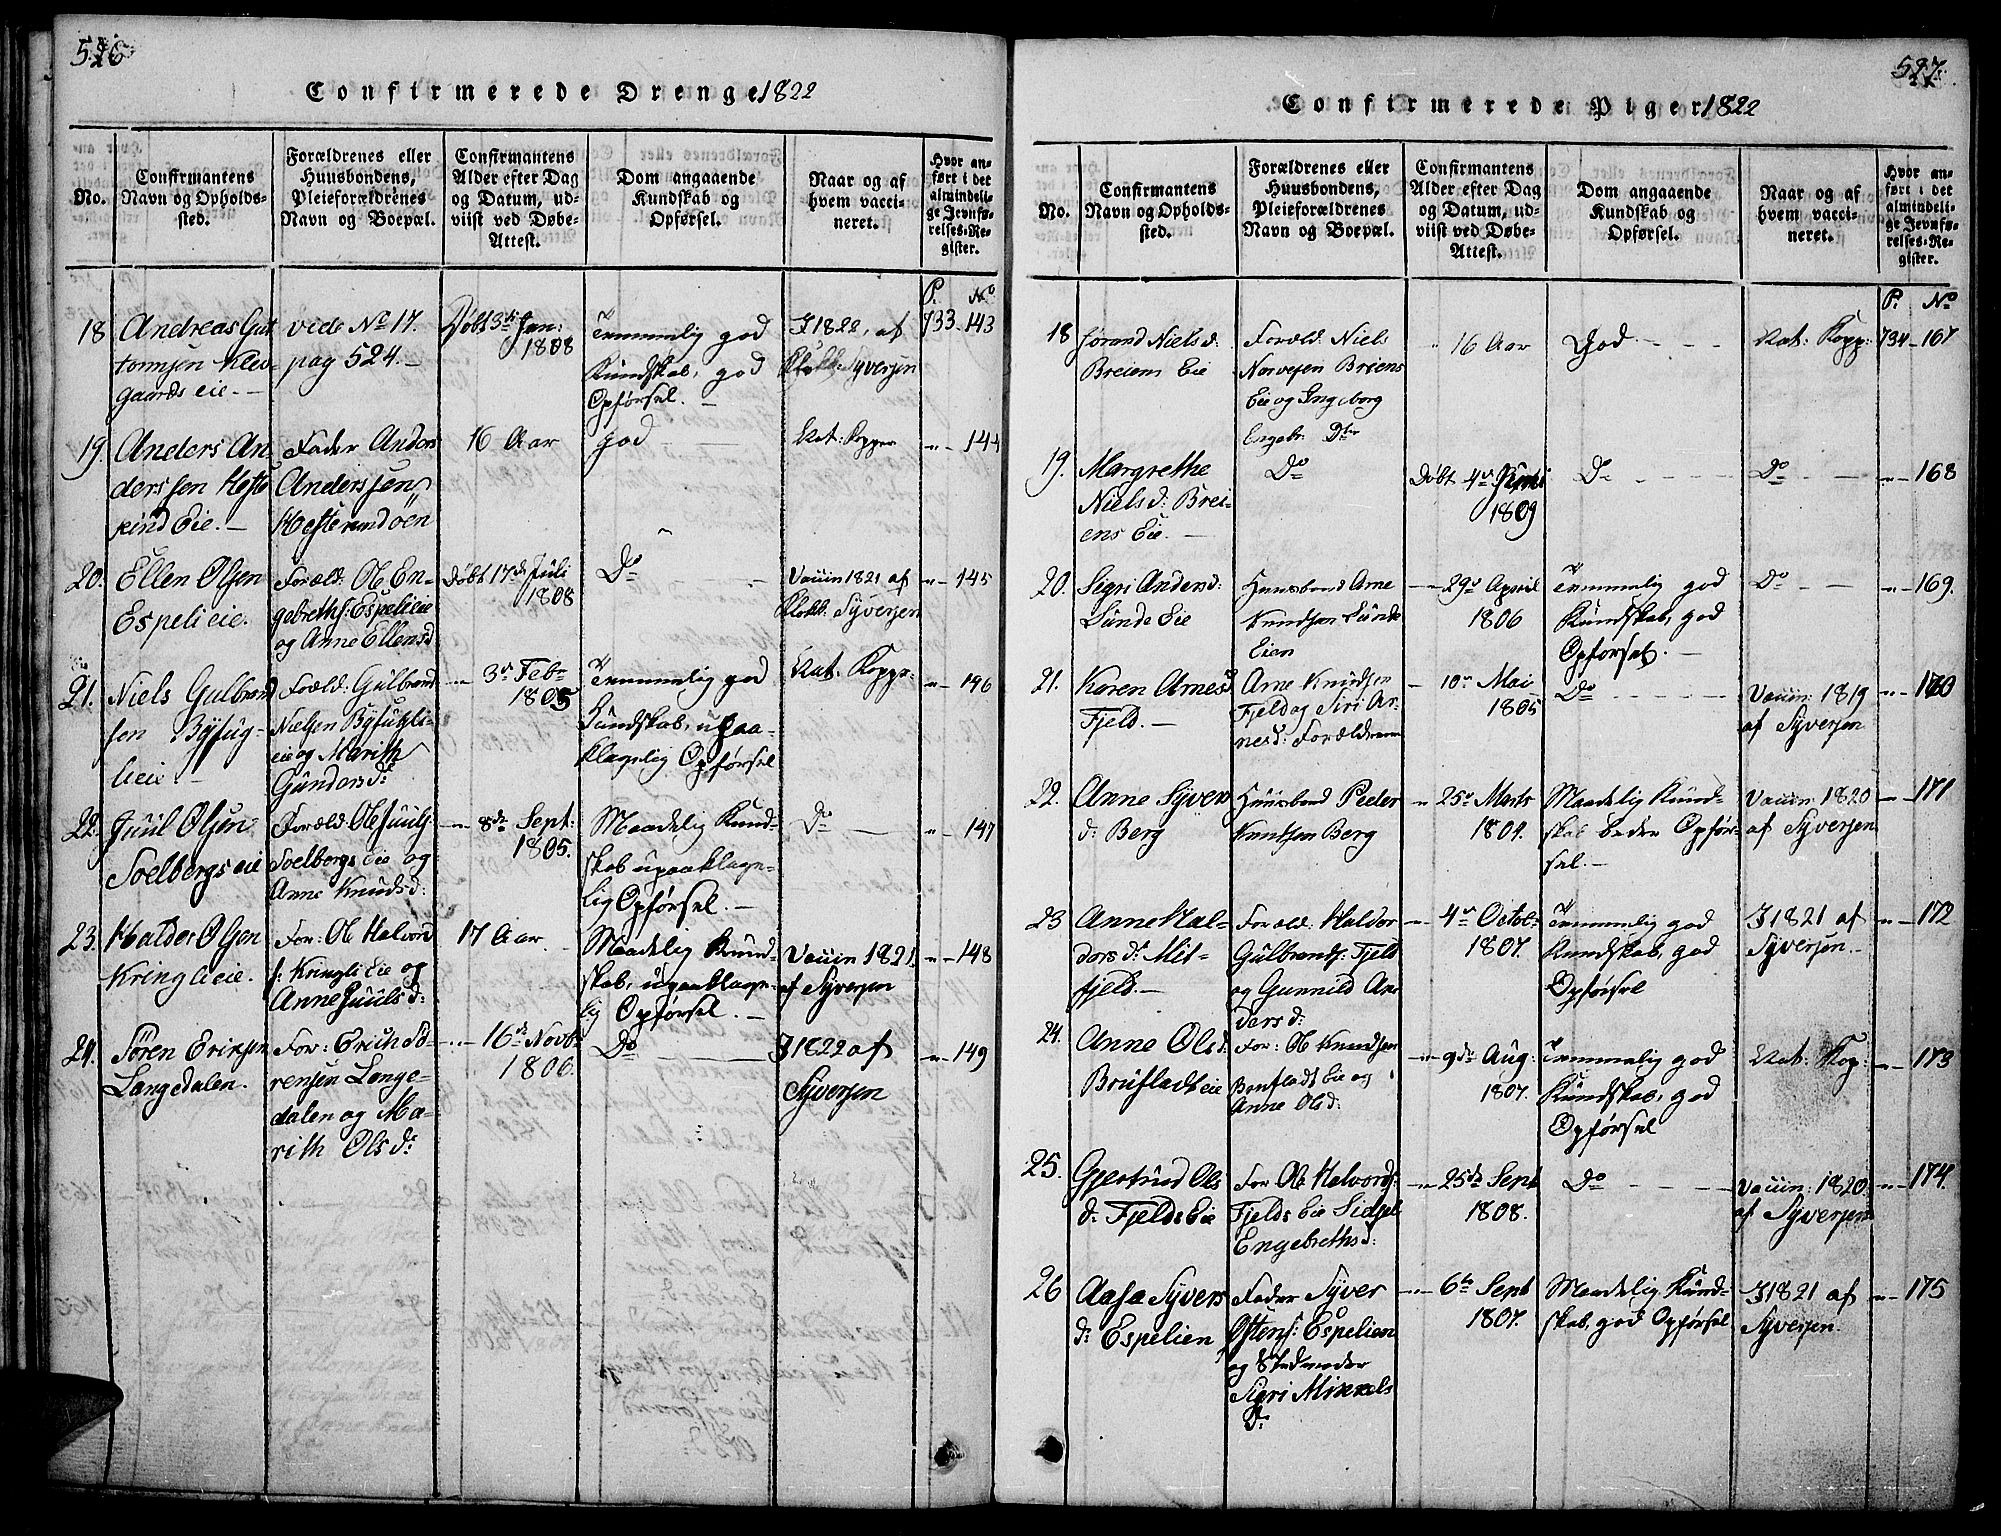 526
Confirmerede Drenge 1822
No.
Confirmantens
Navn og Opholds-
sted.
Forældrenes eller
Huusbondens,
Pleieforældrenes
Navn og Boepæl.
Confirmantens
Alder efter Dag
og Datum, ud-
viist ved Døbe-
Attest.
Dom angaaende
Kundskab og
Opførsel.
Naar og af
hvem vacci-
neret.
Hvor an-
ført i det
almindeli-
ge Jevnfø-
relses-Re-
gister.
P. No
18
Andreas Gut
tormsen Klev-
gaards eie.
vide No 17.
pag 524.
Døbt 3 Jan:
1808
Temmelig god
Kundskab, god
Opførsel.
I 1822, af
Klokk: Syversen
733-143
19.
Anders An-
derssen Heste
rind Eie.
Fader Anders
Anderssen
Hesterindöen
16 Aar
God
Nat: Kopper
"-144
20.
Ellen Olsen
Espeli eie.
Foræld: Ole En-
gebreths: Espelieie
og Anne Ellensd
Døbt 17de Juli
1808
Do
Vaccin 1821 af
Klokk: Syversen
"-145
21.
Niels Gulbrand
sen Byfug-
lieie
Foræld: Gulbrand
Nielsen Byfugli-
eie og Marith
Gundersd:
3 Feb-
1805
Temmelig god
Kundskab, upaa-
klagelig Opførsel
Nat: Koppe-
"-146
22.
Juul Olsen
Soelbergs eie
Foræld: Ole Juuls:
Soelbergs eie og
Anne Knudsd:
8de Sept:
1805.
Maadelig Kund-
skab upaaklage-
lig Opførsel.
Do
"-147
23.
Haldor Olsen
Kringlieie.
For: Ole Halvord
s: Kringli Eie og
Anne Juulsd:
17 Aar
Maadelig Kund-
skab, upaaklage-
lig Opførsel.
Vaccin 1821.
af Syversen
"-148
24.
Sören Ericsen
Langedalen.
For: Erich Sö-
rensen Lange-
dalen og Ma-
rith Olsd:
16de Novb-
1806.
Do
I 1822 af
Syversen
"-149
527.
Confirmerede Piger 1822
No.
Confirmantens
Navn og Opholds-
sted.
Forældrenes eller
Huusbondens,
Pleieforældrenes
Navn og Boepæl.
Confirmantens
Alder efter Dag
og Datum, ud-
viist ved Døbe-
Attest.
Dom angaaende
Kundskab og
Opførsel.
Naar og af
hvem vacci-
neret.
Hvor an-
ført i det
almindeli-
ge Jevnfø-
relses-Re-
gister.
P. No
18
Jorand Nielsd:
Breiens Eie
Foræld: Niels
Norvesen Breiens
Eie og Ingeborg
Engebr. Dtr
16 Aar
God
Nat: Kopp:
734-167
19.
Margrethe
Nielsd: Brei-
ens Eie.
Do
Döbt 4
1809
Do
Do
"-168
20.
Sigri Andersd:
Lunde Eie
Huusbond Arne
Knudsen Lunde
Eien
29 April
1806
Temmelig god
Kundskab, god
Opførsel.
Do
"-169.
21.
Karen Arnesd
Fjeld.
Arne Knudsen
Fjeld og Siri Ar-
nesd: Forældrene
10 Mai
1805
Do
Vaccin: 1819
af Syversen
"-170
22.
Anne Syvers
d: Berg
Huusbond Peder
Knutsen Berg
25 Marts
1804.
Maadelig Kund-
skab beder Opfør-
sel.
Vaccin: 1820
af Syversen
"-171
23
Anne Hal-
dorsd: Mit-
fjeld.
Foræld: Haldor
Gulbrands: Fjeld
og Gunnild An
dersd:
4 Octob:
1807.
Temmelig god
Kundskab, god
Opførsel
I 1821 af
Syversen.
"-172
24.
Anne Olsd:
Brufladteie
For: Ole Knudsen
Brufladt Eie og
Anne Olsd:
9de Aug:
1807.
Temmelig god
Kundskab, god
Opførsel
Nat: Kop:
"-173
25.
Gjertrud Ols
d: Fjelds Eie
For Ole Halvords:
Fjelds Eie Sidsel
Engebrethsd:
25de Sept
1808.
Do
Vaccin: 1820.
af Syversen
"-174.
26
Aasa Syvers
d: Espelien
Fader Syver
Ostens: Espelien
og Stedmoder
Sigri Mikkels
d:
6te Sept
1807.
Maadelig Kund-
skab, god Opførsel
I 1821 af
Syversen.
"-175